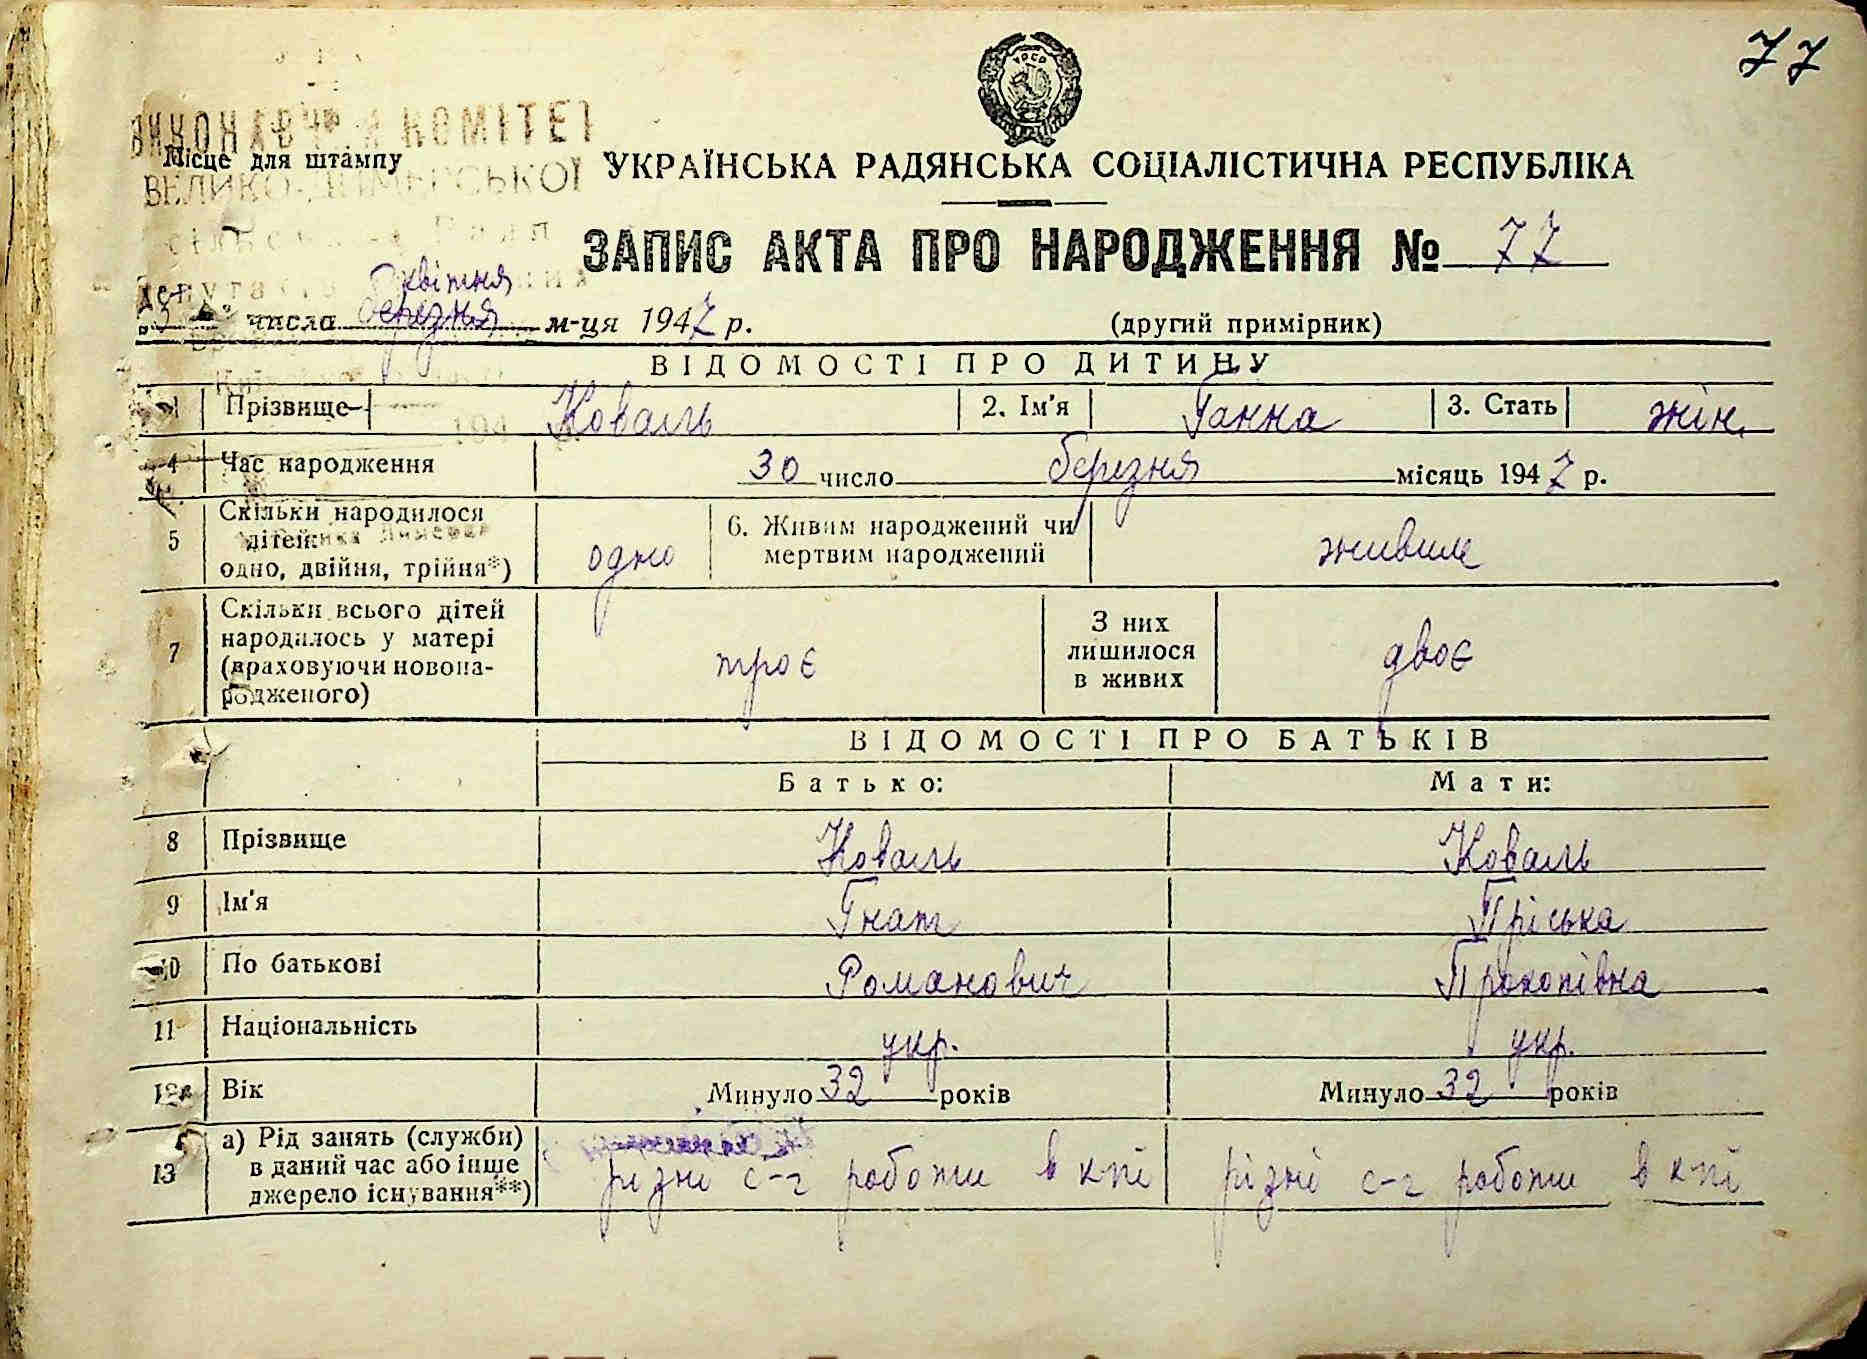 77
УРСР
ВИКОНАВЧИЙ КОМІТЕТ
Місце для штампу
УКРАЇНСЬКА РАДЯНСЬКА СОЦІАЛІСТИЧНА РЕСПУБЛІКА
ВЕЛИКО-ДИМЕРСЬКОЇ
ЗАПИС АКТА ПРО НАРОДЖЕННЯ № 77
квітня
числа березня м-ця 1947 р.
(другий примірник)
ВІДОМОСТІ ПРО ДИТИНУ
1 Прізвище Коваль 2. Ім'я Ганна 3. Стать жін.
4 Час народження 30 число березня місяць 1947 р.
5 Скільки народилося дітей: одно, двійня, трійня*) одно 6. Живим народжений чи мертвим народжений живим
7 Скільки всього дітей народилось у матері (враховуючи новонародженого) троє З них лишилося в живих двоє
ВІДОМОСТІ ПРО БАТЬКІВ
Батько: Мати:
8 Прізвище Коваль Коваль
9 Ім'я Гнат Пріська
10 По батькові Романович Прокопівна
11 Національність укр. укр.
12 Вік Минуло 32 років Минуло 32 років
13 а) Рід занять (служби) в даний час або інше джерело існування**) різні с-г роботи в к-пі різні с-г роботи в к-пі